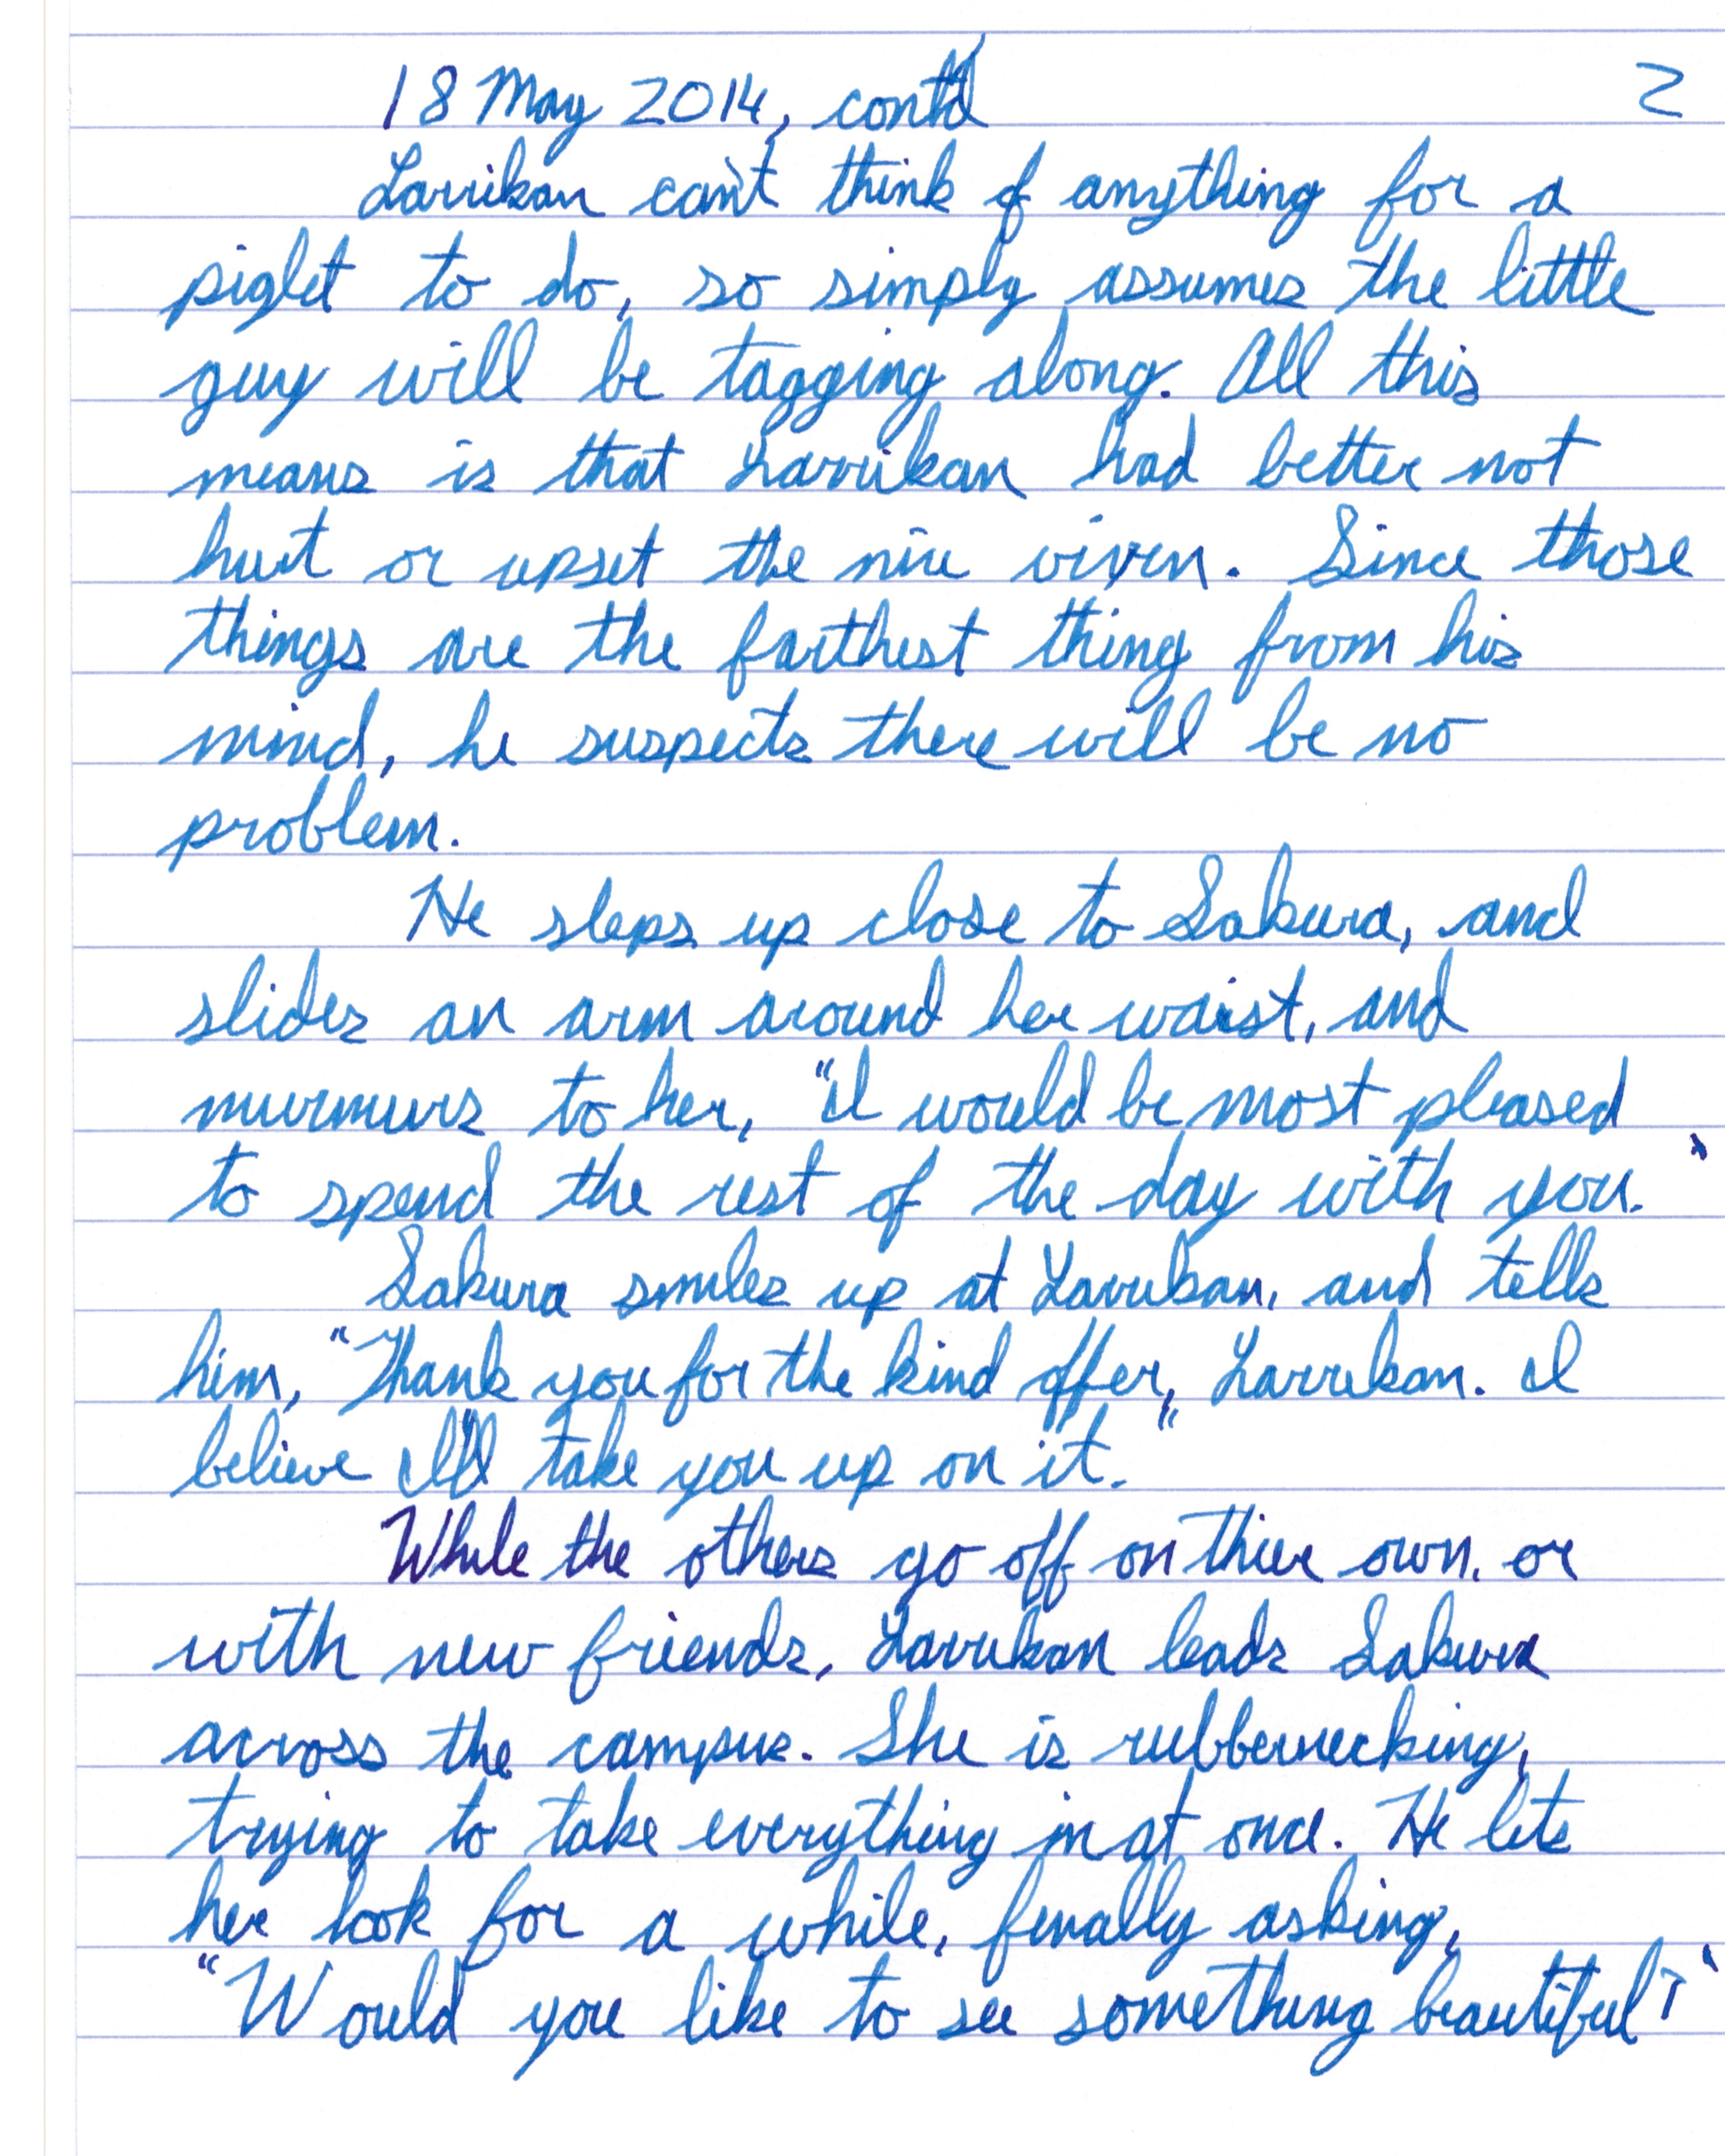 18 May 2014, cont'd 2
Larrikan can't think of anything for a
piglet to do, so simply assumes the little
guy will be tagging along. All this
means is that Larrikan had better not
hurt or upset the nice vixen. Since those
things are the farthest thing from his
mind, he suspects there will be no
problem.
He steps up close to Sakura, and
slides an arm around her waist, and
murmurs to her, "I would be most pleased
to spend the rest of the day with you."
Sakura smiles up at Larrikan, and tells
him, "Thank you for the kind offer, Larrikan. I
believe I'll take you up on it."
While the others go off on thier own, or
with new friends, Larrikan leads Sakura
across the campus. She is rubbernecking,
trying to take everything in at once. He lets
her look for a while, finally asking,
"Would you like to see something beautiful?"